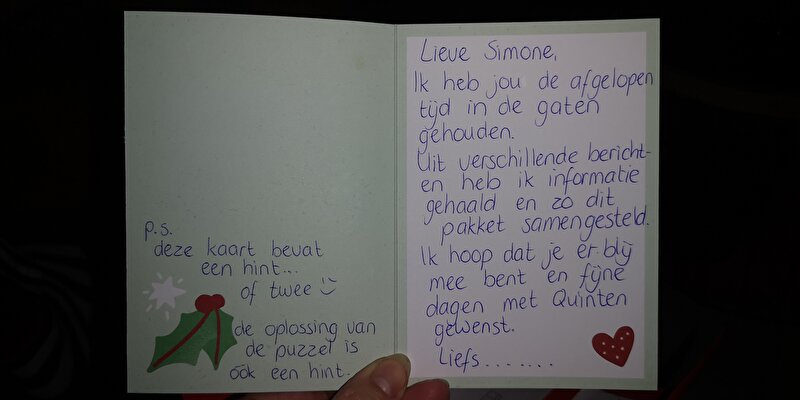 p.s.
deze kaart bevat
een hint...
of twee :)
de oplossing van
de puzzel is
óók een hint..
Lieve Simone,
Ik heb jou de afgelopen
tijd in de gaten
gehouden.
Uit verschillende bericht-
en heb ik informatie
gehaald en zo dit
pakket samengesteld.
Ik hoop dat je er blij
mee bent en fijne
dagen met Quinten
gewenst.
Liefs.......